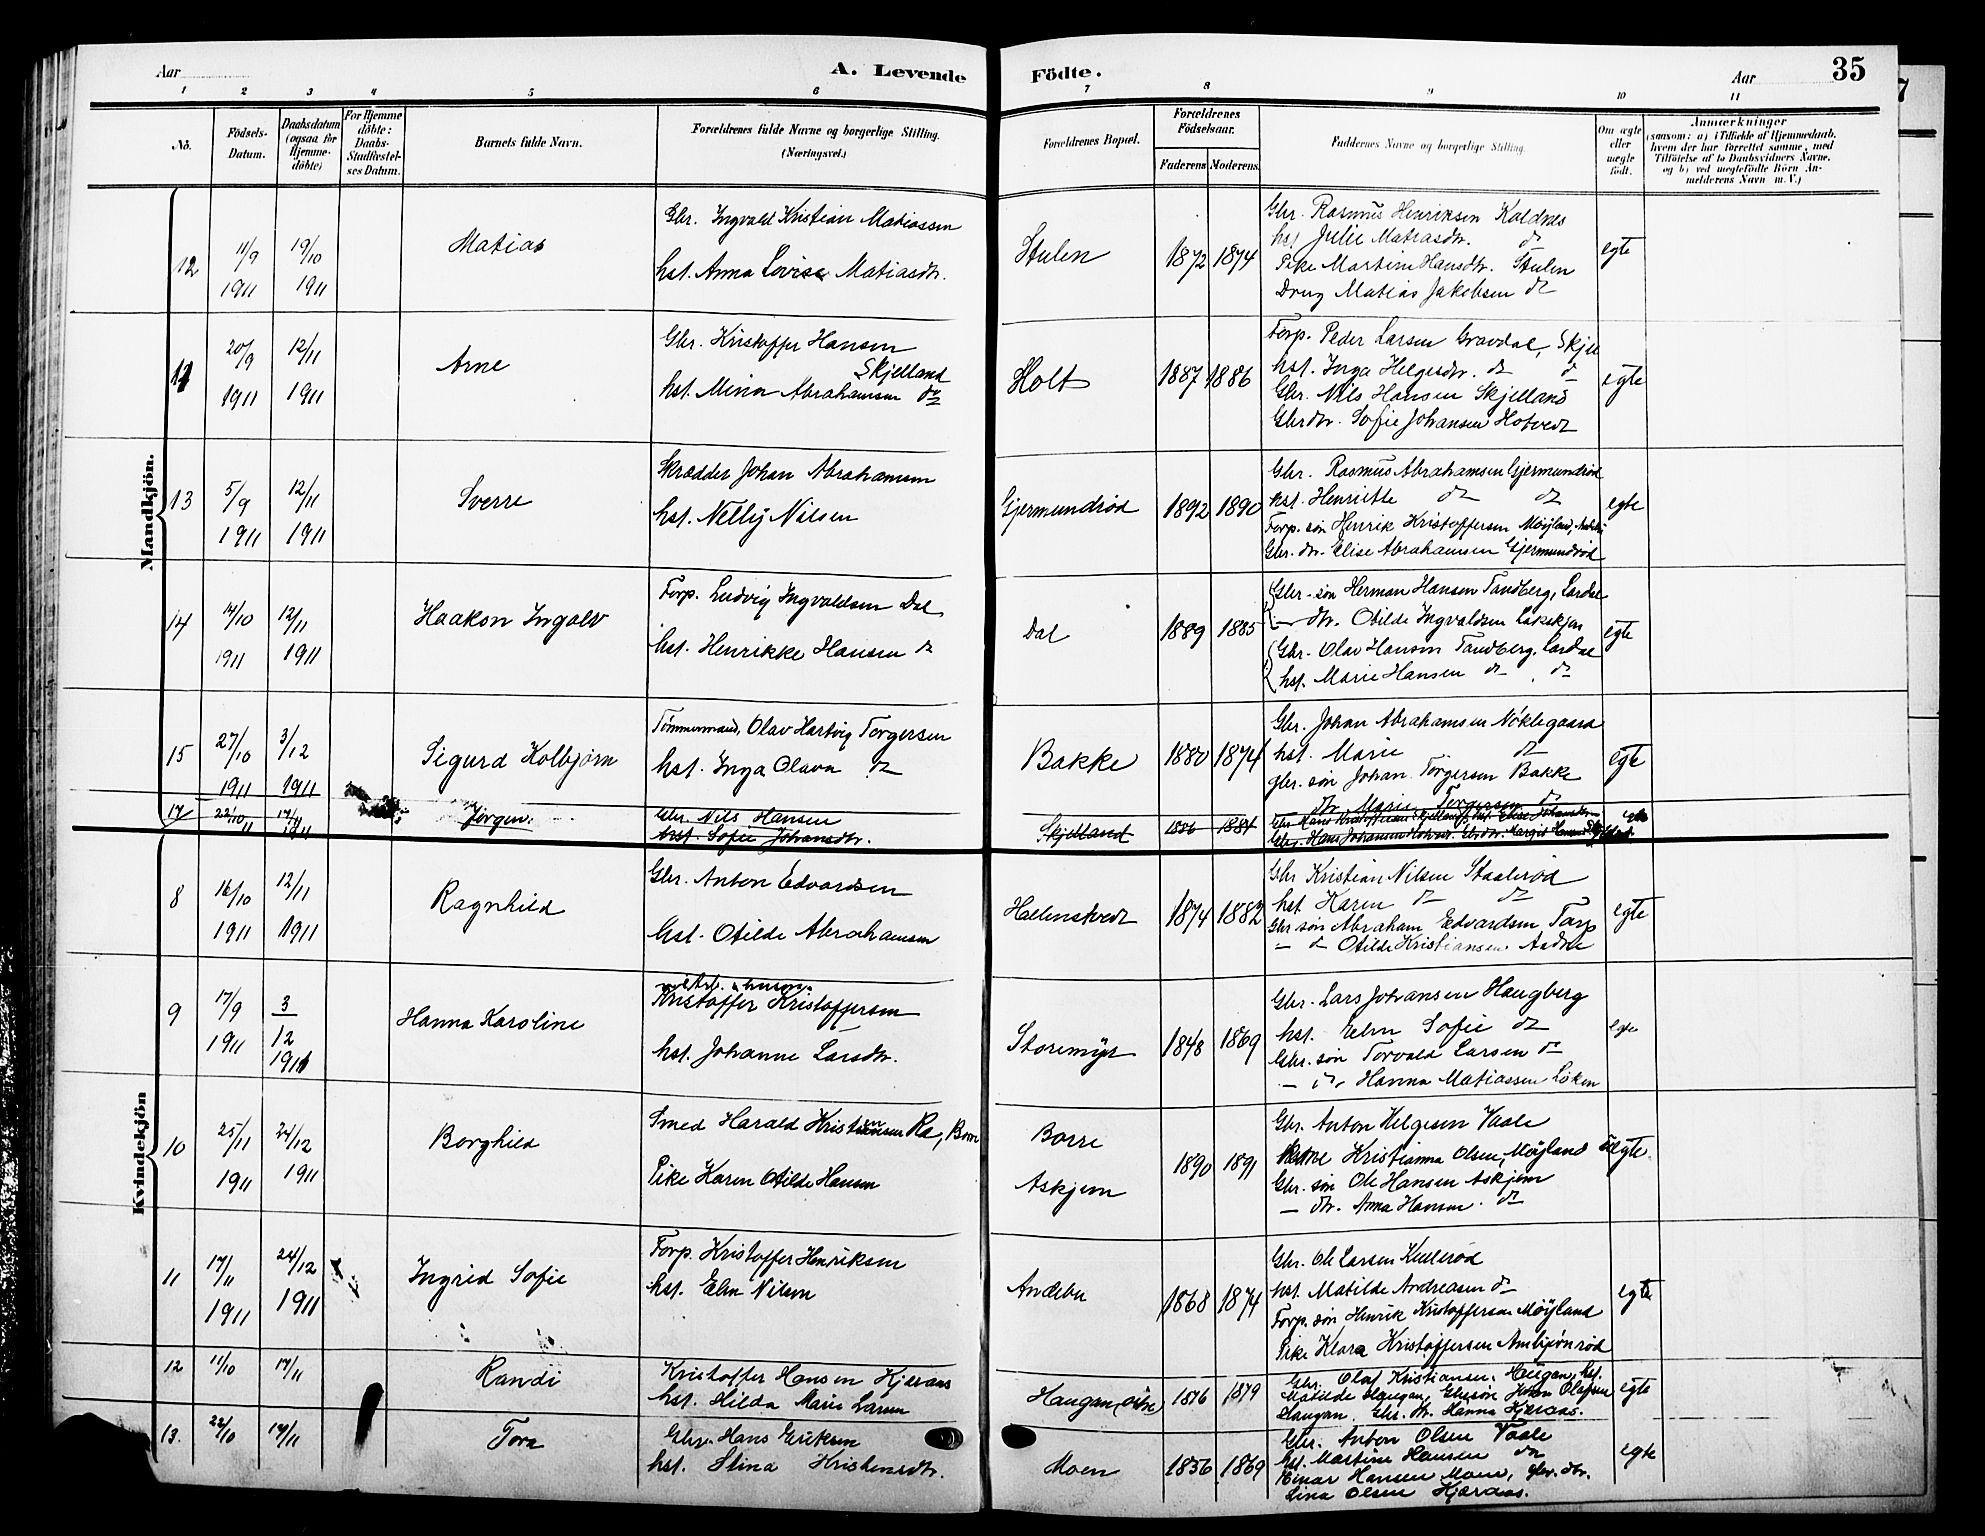 Aar
A. Levende Fødte.
Aar
35
1 2 3 4 5 6 7 8 9 10 11
No.
Fødsels-Datum.
Daabsdatum (ogsaa for Hjemmedøbte)
For Hjemmedøbte: Daabs-Stadfæstelses Datum.
Barnets fulde Navn.
Forældrenes fulde Navne og borgerlige Stilling. (Næringsvei.)
Forældrenes Bopæl.
Forældrenes Fødselsaar.
Faderens Moderens.
Faddernes Navne og borgerlige Stilling.
Om ægte eller uægte født.
Anmærkninger
(saasom: a) i Tilfælde af Hjemmedaab, hvem der har forrettet samme, med Tilføielse af to Daabsvidners Navne, og b) ved uegtefødte Börn Anmelderens Navn m. V.)
Mandkjön.
12 11/9 1911 19/10 1911 Matias
Gbr. Ingvald Kristian Matiassen
hst. Anna Lovise Matiasdtr.
Stulen 1872 1874
Gbr. Rasmus Henriksen Kaldnes
hst. Julie Matiasdtr. do
Pike Martine Hansdtr. Stulen
Dreng Matias Jakobsen do
egte
20/9 1911 12/11 1911 Arne
Gbr. Kristoffer Hansen Skjelland
hst. Mina Abrahamsen do
Holt 1887 1886
Forp. Peder Larsen Gravdal, Skjell
hst. Inga Helgesdtr. do do
Gbr. Nils Hansen Skjelland
Gbrdtr. Sofie Johansen Hotvedt
egte
13 5/9 1911 12/11 1911 Sverre
Skrædder Johan Abrahamsen
hst. Nelly Nilsen
Gjermundrød 1892 1890
Gbr. Rasmus Abrahamsen Gjermundrød
hst. Henriette do do
Forp. søn Henrik Kristoffersen Møyland,
Gbr. dtr. Elise Abrahamsen Gjermundrød
egte
14 14/10 1911 12/11 1911 Haakon Ingolv
Forp. Ludvig Ingvaldsen Dal
hst. Henrikke Hansen do
Dal 1889 1885
Gbr. søn Herman Hansen Tandberg, Lardal
— dtr. Otilde Ingvaldsen
Gbr. Olav Hansen Tandberg, Lardal
hst. Marie Hansen do do
egte
15 27/10 1911 3/12 1911 Sigurd Kolbjørn
Tømmermand, Olav Hartvig Torgersen
hst. Inga Olava do
Bakke 1880 1874
Gbr. Johan Abrahamsen Nøklegaard
hst. Marie do
gbr. søn Johan Torgersen Bakke
dtr. Marie Torgersen do
egte
17 22/10 11 17/11 1911 Jørgen.
Gbr. Nils Hansen
hst. Sofie Johansdtr.
Skjelland 1886 1884
Gbr. Hans Kristiansen Skjelland, hst. Elise Johansdtr.
Gbr. Hans Johansen Hotvedt. Gbrdtr. Margit Hansen Skjelland.
egte
Kvindekjön
8 16/10 1911 12/11 1911 Ragnhild
Gbr. Anton Edvardsen
Hst. Otilde Abrahamsen
Hallenstvedt 1874 1882
Gbr Kristian Nilsen Staalerød
hst. Karen do do
Gbr søn Abraham Edvardsen Torp
— do Otilde Kristiansen
egte
9 17/9 1911 3/12 1911 Hanna Karoline
Kristoffer Kristoffersen
hst. Johanne Larsdtr.
Storemyr 1848 1869
Gbr. Lars Johansen Haugberg
hst. Elen Sofie do
Gbr. søn Torvald Larsen do
— do Hanna Matiassen Løken
egte
10 25/11 1911 24/12 1911 Borghild
Smed Harald Kristiansen Ra, Borre
Pike Karen Otilde Hansen
Borre
Askjem
1890 1891
Gbr. Anton Helgesen Vaale
Kristianna Olsen, Møyland
Gbr. søn Ole Hansen Askjem
— dtr. Anna Hansen do
uegte.
11 17/11 1911 24/12 1911 Ingrid Sofie
Forp. Kristoffer Henriksen
hst. Elen Nilsen
Andebu 1868 1874
Gbr. Ole Larsen Kullerød
hst. Matilde Andreasen do
Forp. søn Henrik Kristoffersen Møyland
Pike Klara Kristoffersen
egte
12 11/10 17/11 Randi
Kristoffer Hansen Kjæraas
hst. Hilda Marie Larsen
Haugan (østre) 1876 1879
Gbr. Olaf Kristiansen, Haugan, hst.
Matilde Haugan, Gbr.søn Johan Olafsen
Haugan. Gbr. dtr. Hanna Kjæraas.
egte
13. 22/10 17/11 Tora
Gbr. Hans Eriksen
hst. Stina Kristensdtr.
Moen 1856 1869
Gbr. Anton Olsen Vaale
Hst. Martine Hansen do
Einar Hansen Moen, gbr. dtr.
Lina Olsen Kjæraas.
egte